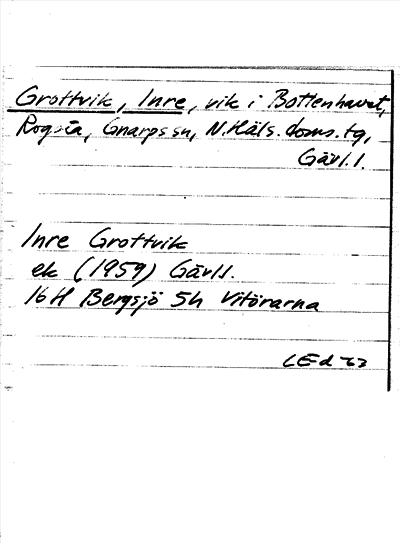 Grottvik, Inre, vik i Bottenhavet,
Rogsta, Gnarps sn, N.Häls. doms. tg,
Gävl.l.
Inre Grottvik
ek (1959) Gävll.
16H Bergsjö 5h Vitörarna
LEd 73